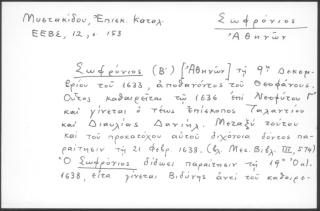 Μυστακίδου, Ἐπισκ. Καταλ.
ΕΕΒΣ, 12, σ. 153
Σωφρόνιος
Ἀθηνῶν
Σωφρόνιος (Β΄) [Ἀθηνῶν] τῇ 9ῃ Δεκεμ-
βρίου τοῦ 1633, ἀποθανόντος τοῦ Θεοφάνους.
Οὗτος καθαιρεῖται τῷ 1636 ἐπὶ Νεοφύτου Γ΄
καὶ γίνεται ὁ τέως Ἐπίσκοπος Ταλαντίου
καὶ Διαυλίας Δανιήλ. Μεταξὺ τούτου
καὶ τοῦ προκατόχου αὐτοῦ διχόνοια δόντος πα-
ραίτησιν τῇ 21 Φεβρ. 1638. (βλ. Μεσ. Βιβλ. ΙΙΙ, 574)
Ὁ Σωφρόνιος δίδωσι παραίτησιν τῇ 19ῃ Ὀκτ.
1638, εἶτα γίνεται Βιδύνης ἀντὶ τοῦ καθαιρε-